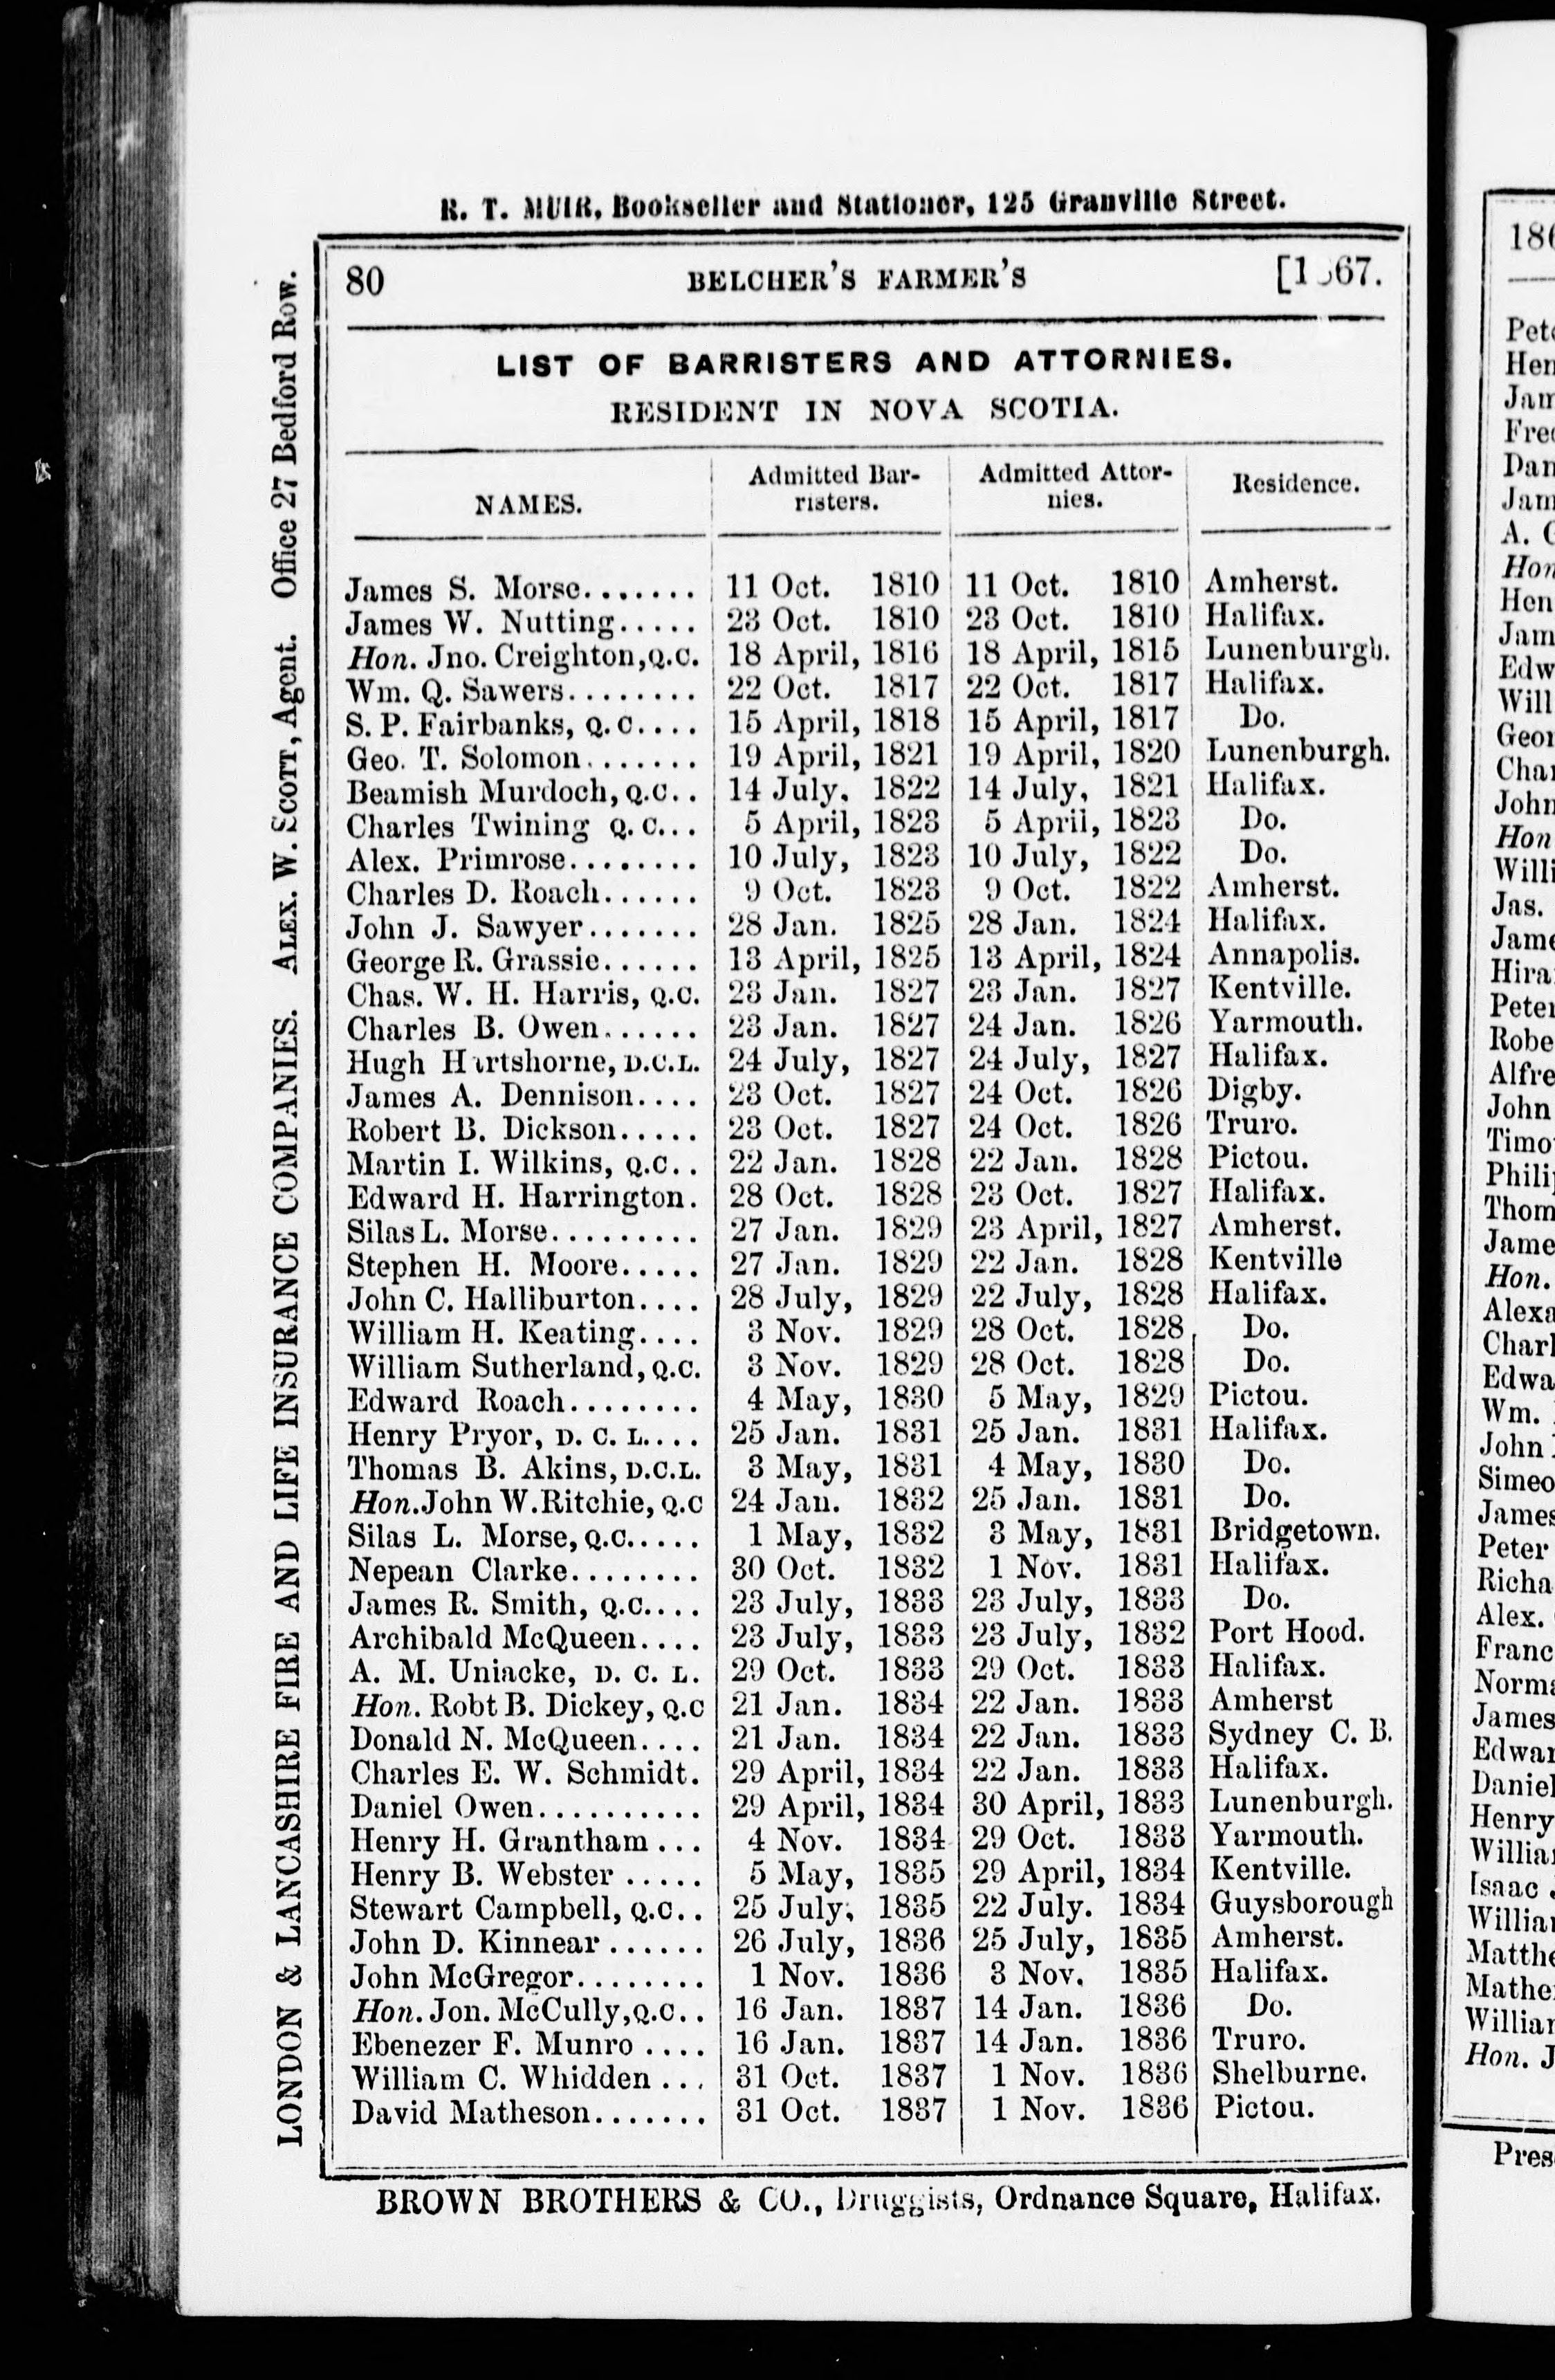 R. T. MUIR, Bookseller and Stationer, 125 Granville Street.
80 BELCHER'S FARMER'S [1867.
LIST OF BARRISTERS AND ATTORNIES.
RESIDENT IN NOVA SCOTIA.
NAMES. Admitted Bar-risters. Admitted Attor-nies. Residence.
James S. Morse....... 11 Oct. 1810 11 Oct. 1810 Amherst.
James W. Nutting..... 23 Oct. 1810 23 Oct. 1810 Halifax.
Hon. Jno. Creighton, Q.C. 18 April, 1816 18 April, 1815 Lunenburgh.
Wm. Q. Sawers........ 22 Oct. 1817 22 Oct. 1817 Halifax.
S. P. Fairbanks, Q.C.... 15 April, 1818 15 April, 1817 Do.
Geo. T. Solomon....... 19 April, 1821 19 April, 1820 Lunenburgh.
Beamish Murdoch, Q.C.. 14 July, 1822 14 July, 1821 Halifax.
Charles Twining Q.C... 5 April, 1823 5 April, 1823 Do.
Alex. Primrose........ 10 July, 1823 10 July, 1822 Do.
Charles D. Roach...... 9 Oct. 1823 9 Oct. 1822 Amherst.
John J. Sawyer....... 28 Jan. 1825 28 Jan. 1824 Halifax.
George R. Grassie...... 13 April, 1825 13 April, 1824 Annapolis.
Chas. W. H. Harris, Q.C. 23 Jan. 1827 23 Jan. 1827 Kentville.
Charles B. Owen...... 23 Jan. 1827 24 Jan. 1826 Yarmouth.
Hugh Hartshorne, D.C.L. 24 July, 1827 24 July, 1827 Halifax.
James A. Dennison.... 23 Oct. 1827 24 Oct. 1826 Digby.
Robert B. Dickson..... 23 Oct. 1827 24 Oct. 1826 Truro.
Martin I. Wilkins, Q.C.. 22 Jan. 1828 22 Jan. 1828 Pictou.
Edward H. Harrington. 28 Oct. 1828 23 Oct. 1827 Halifax.
Silas L. Morse......... 27 Jan. 1829 23 April, 1827 Amherst.
Stephen H. Moore..... 27 Jan. 1829 22 Jan. 1828 Kentville
John C. Halliburton.... 28 July, 1829 22 July, 1828 Halifax.
William H. Keating.... 3 Nov. 1829 28 Oct. 1828 Do.
William Sutherland, Q.C. 3 Nov. 1829 28 Oct. 1828 Do.
Edward Roach........ 4 May, 1830 5 May, 1829 Pictou.
Henry Pryor, D. C. L.... 25 Jan. 1831 25 Jan. 1831 Halifax.
Thomas B. Akins, D.C.L. 3 May, 1831 4 May, 1830 Do.
Hon. John W. Ritchie, Q.C 24 Jan. 1832 25 Jan. 1831 Do.
Silas L. Morse, Q.C..... 1 May, 1832 3 May, 1831 Bridgetown.
Nepean Clarke........ 30 Oct. 1832 1 Nov. 1831 Halifax.
James R. Smith, Q.C.... 23 July, 1833 23 July, 1833 Do.
Archibald McQueen.... 23 July, 1833 23 July, 1832 Port Hood.
A. M. Uniacke, D. C. L. 29 Oct. 1833 29 Oct. 1833 Halifax.
Hon. Robt B. Dickey, Q.C 21 Jan. 1834 22 Jan. 1833 Amherst
Donald N. McQueen.... 21 Jan. 1834 22 Jan. 1833 Sydney C. B.
Charles E. W. Schmidt. 29 April, 1834 22 Jan. 1833 Halifax.
Daniel Owen.......... 29 April, 1834 30 April, 1833 Lunenburgh.
Henry H. Grantham ... 4 Nov. 1834 29 Oct. 1833 Yarmouth.
Henry B. Webster ..... 5 May, 1835 29 April, 1834 Kentville.
Stewart Campbell, Q.C.. 25 July, 1835 22 July. 1834 Guysborough
John D. Kinnear ...... 26 July, 1836 25 July, 1835 Amherst.
John McGregor........ 1 Nov. 1836 3 Nov. 1835 Halifax.
Hon. Jon. McCully, Q.C.. 16 Jan. 1837 14 Jan. 1836 Do.
Ebenezer F. Munro .... 16 Jan. 1837 14 Jan. 1836 Truro.
William C. Whidden ... 31 Oct. 1837 1 Nov. 1836 Shelburne.
David Matheson....... 31 Oct. 1837 1 Nov. 1836 Pictou.
BROWN BROTHERS & CO., Druggists, Ordnance Square, Halifax.
LONDON & LANCASHIRE FIRE AND LIFE INSURANCE COMPANIES. ALEX. W. SCOTT, Agent. Office 27 Bedford Row.